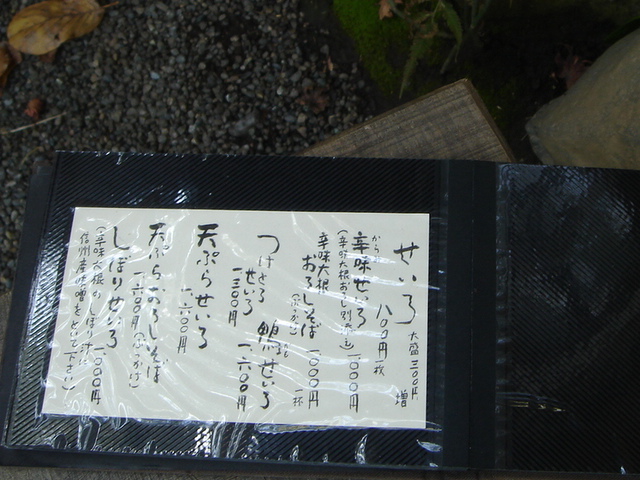 せいろ 八〇〇円 一枚
大盛 三〇〇円増
からみ
辛味せいろ 一〇〇〇円
(辛味大根おろし別だし)
辛味大根
おろしそば 一〇〇〇円
(ぶっかけ) 一杯
つけせいろ
せいろ 一三〇〇円
鴨せいろ 一六〇〇円
天ぷらせいろ
一六〇〇円
天ぷらおろしそば
一六〇〇円(ぶっかけ)
しぼりせいろ 一〇〇〇円
(辛味大根のしぼり汁に
信州産味噌をといて下さい)